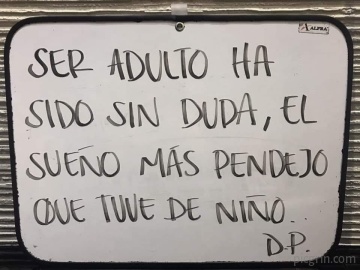 ALFRA
SER ADULTO HA
SIDO SIN DUDA, EL
SUEÑO MÁS PENDEJO
QUE TUVE DE NIÑO..
D.P.